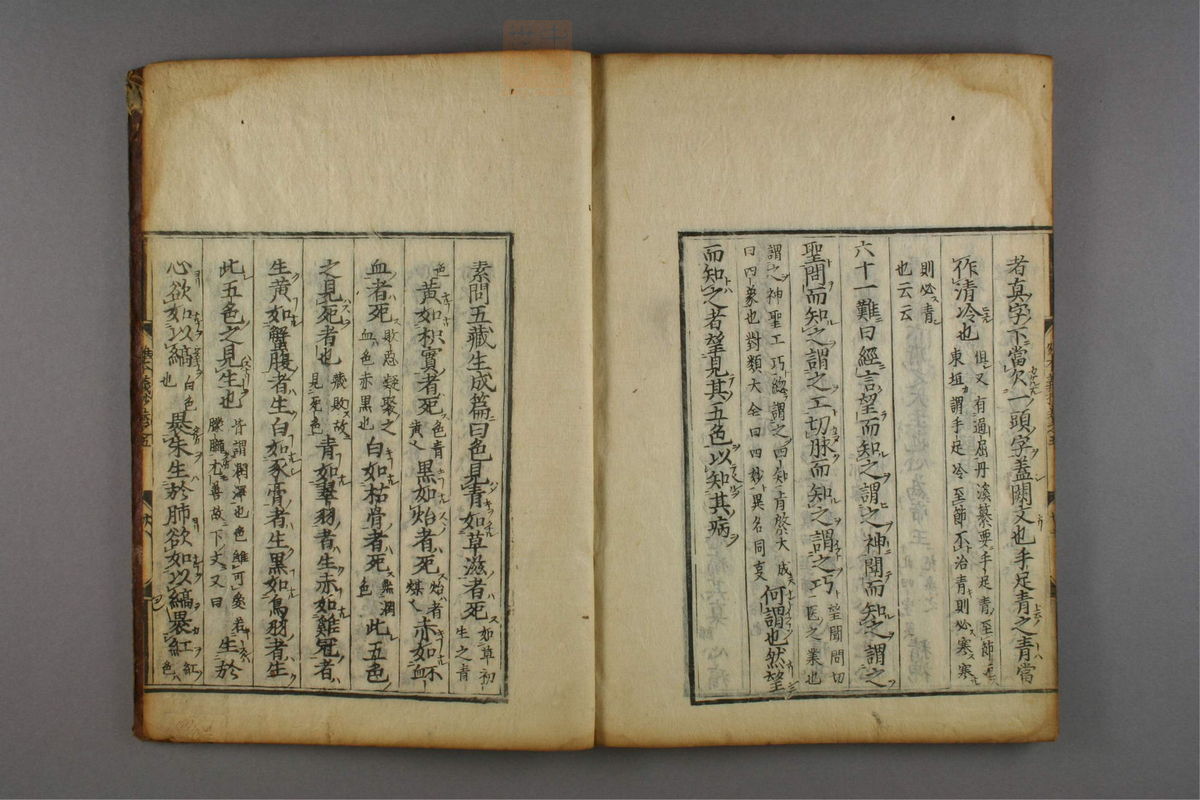 者真字下當欠一頭字蓋闕文也手足青之青當
作清冷也 俱又有過屈丹溪纂要手足青至節
東垣謂手足冷至節不治青則必寒寒
則必青
也云云
六十一難曰經言望而知之謂之神聞而知之謂之
聖問而知之謂之工切脉而知之謂之巧 望聞問切
醫之業也
謂之神聖工巧 謂之四知 大成
曰四象也對類大全曰四妙異名同 何謂也然望
而知之者望見其五色以知其病
素問五藏生成篇曰色見青如草滋者死 如草初
生之青
色 黄如枳實者死 色青
黄 黒如炲者死 炲者
煤 赤如衃
血者死 敗惡凝聚之
血色赤黒也 白如枯骨者死 無潤
色 此五色
之見死者也 藏敗故
見死色 青如翠羽者生赤如雞冠者
生黄如蟹腹者生白如豕膏者生黒如烏羽者生
此五色之見生也 皆謂潤澤也色雖可愛若
朦朧尤善故下文又曰 生於
心欲如以縞 白色
也 裹朱生於肺欲如以縞裹紅 紅
色